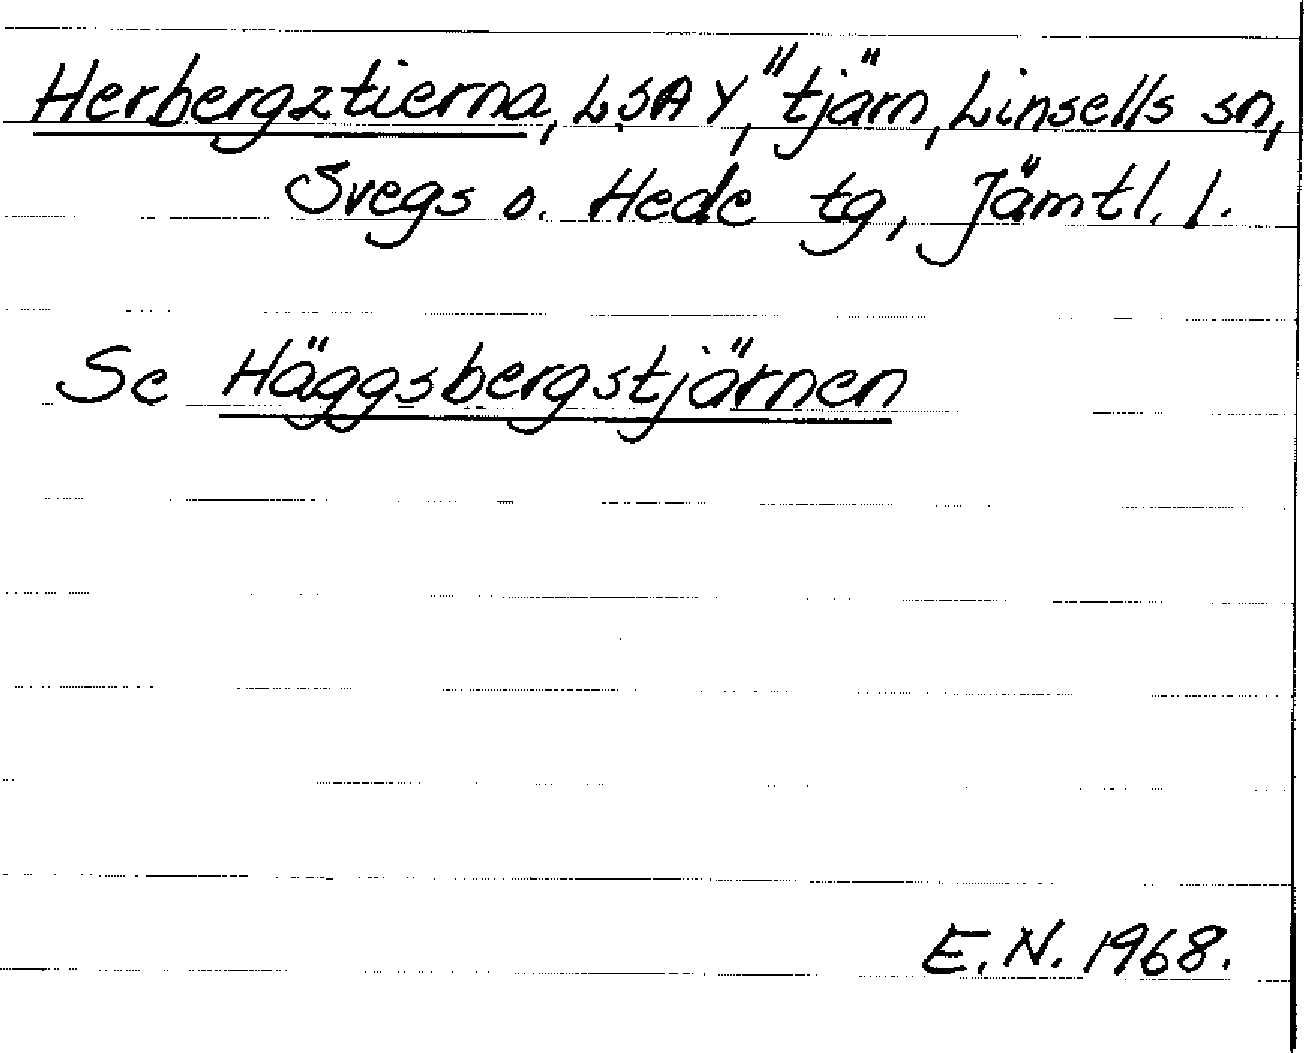 Herbergztierna, LSA Y," tjärn, Linsells sn,
Svegs o. Hede tg, Jämtl. l.
Se Häggsbergstjärnen
E.N. 1968.